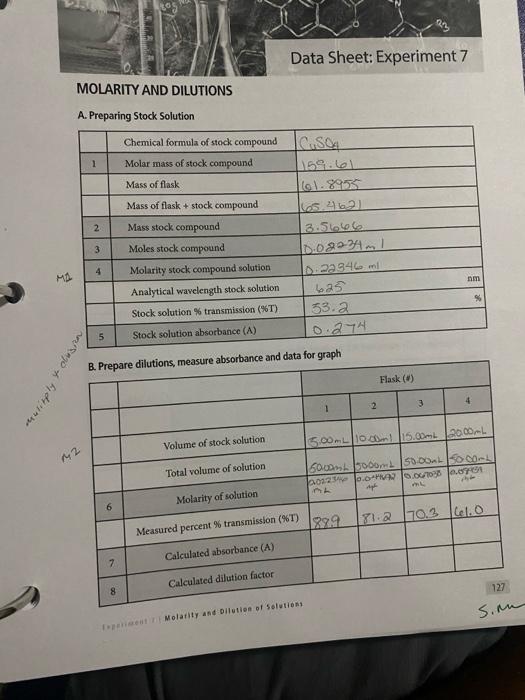 Data Sheet: Experiment 7
MOLARITY AND DILUTIONS
A. Preparing Stock Solution
Chemical formula of stock compound CuSO4
1 Molar mass of stock compound 159.61
Mass of flask 61.8955
Mass of flask + stock compound 65.4621
2 Mass stock compound 3.5666
3 Moles stock compound 0.02234ml
M1 4 Molarity stock compound solution 0.22346 ml
Analytical wavelength stock solution 625 nm
Stock solution % transmission (%T) 53.2 %
5 Stock solution absorbance (A) 0.274
B. Prepare dilutions, measure absorbance and data for graph
Flask (#)
1 2 3 4
Volume of stock solution 5.00mL 10.00ml 15.00mL 20.00mL
M2 Total volume of solution 50.00mL 50.00mL 50.00mL 50.00mL
6 Molarity of solution
Measured percent % transmission (%T) 88.9 81.2 70.3 61.0
7 Calculated absorbance (A)
8 Calculated dilution factor
127
Experiment 7 | Molarity and Dilution of Solutions